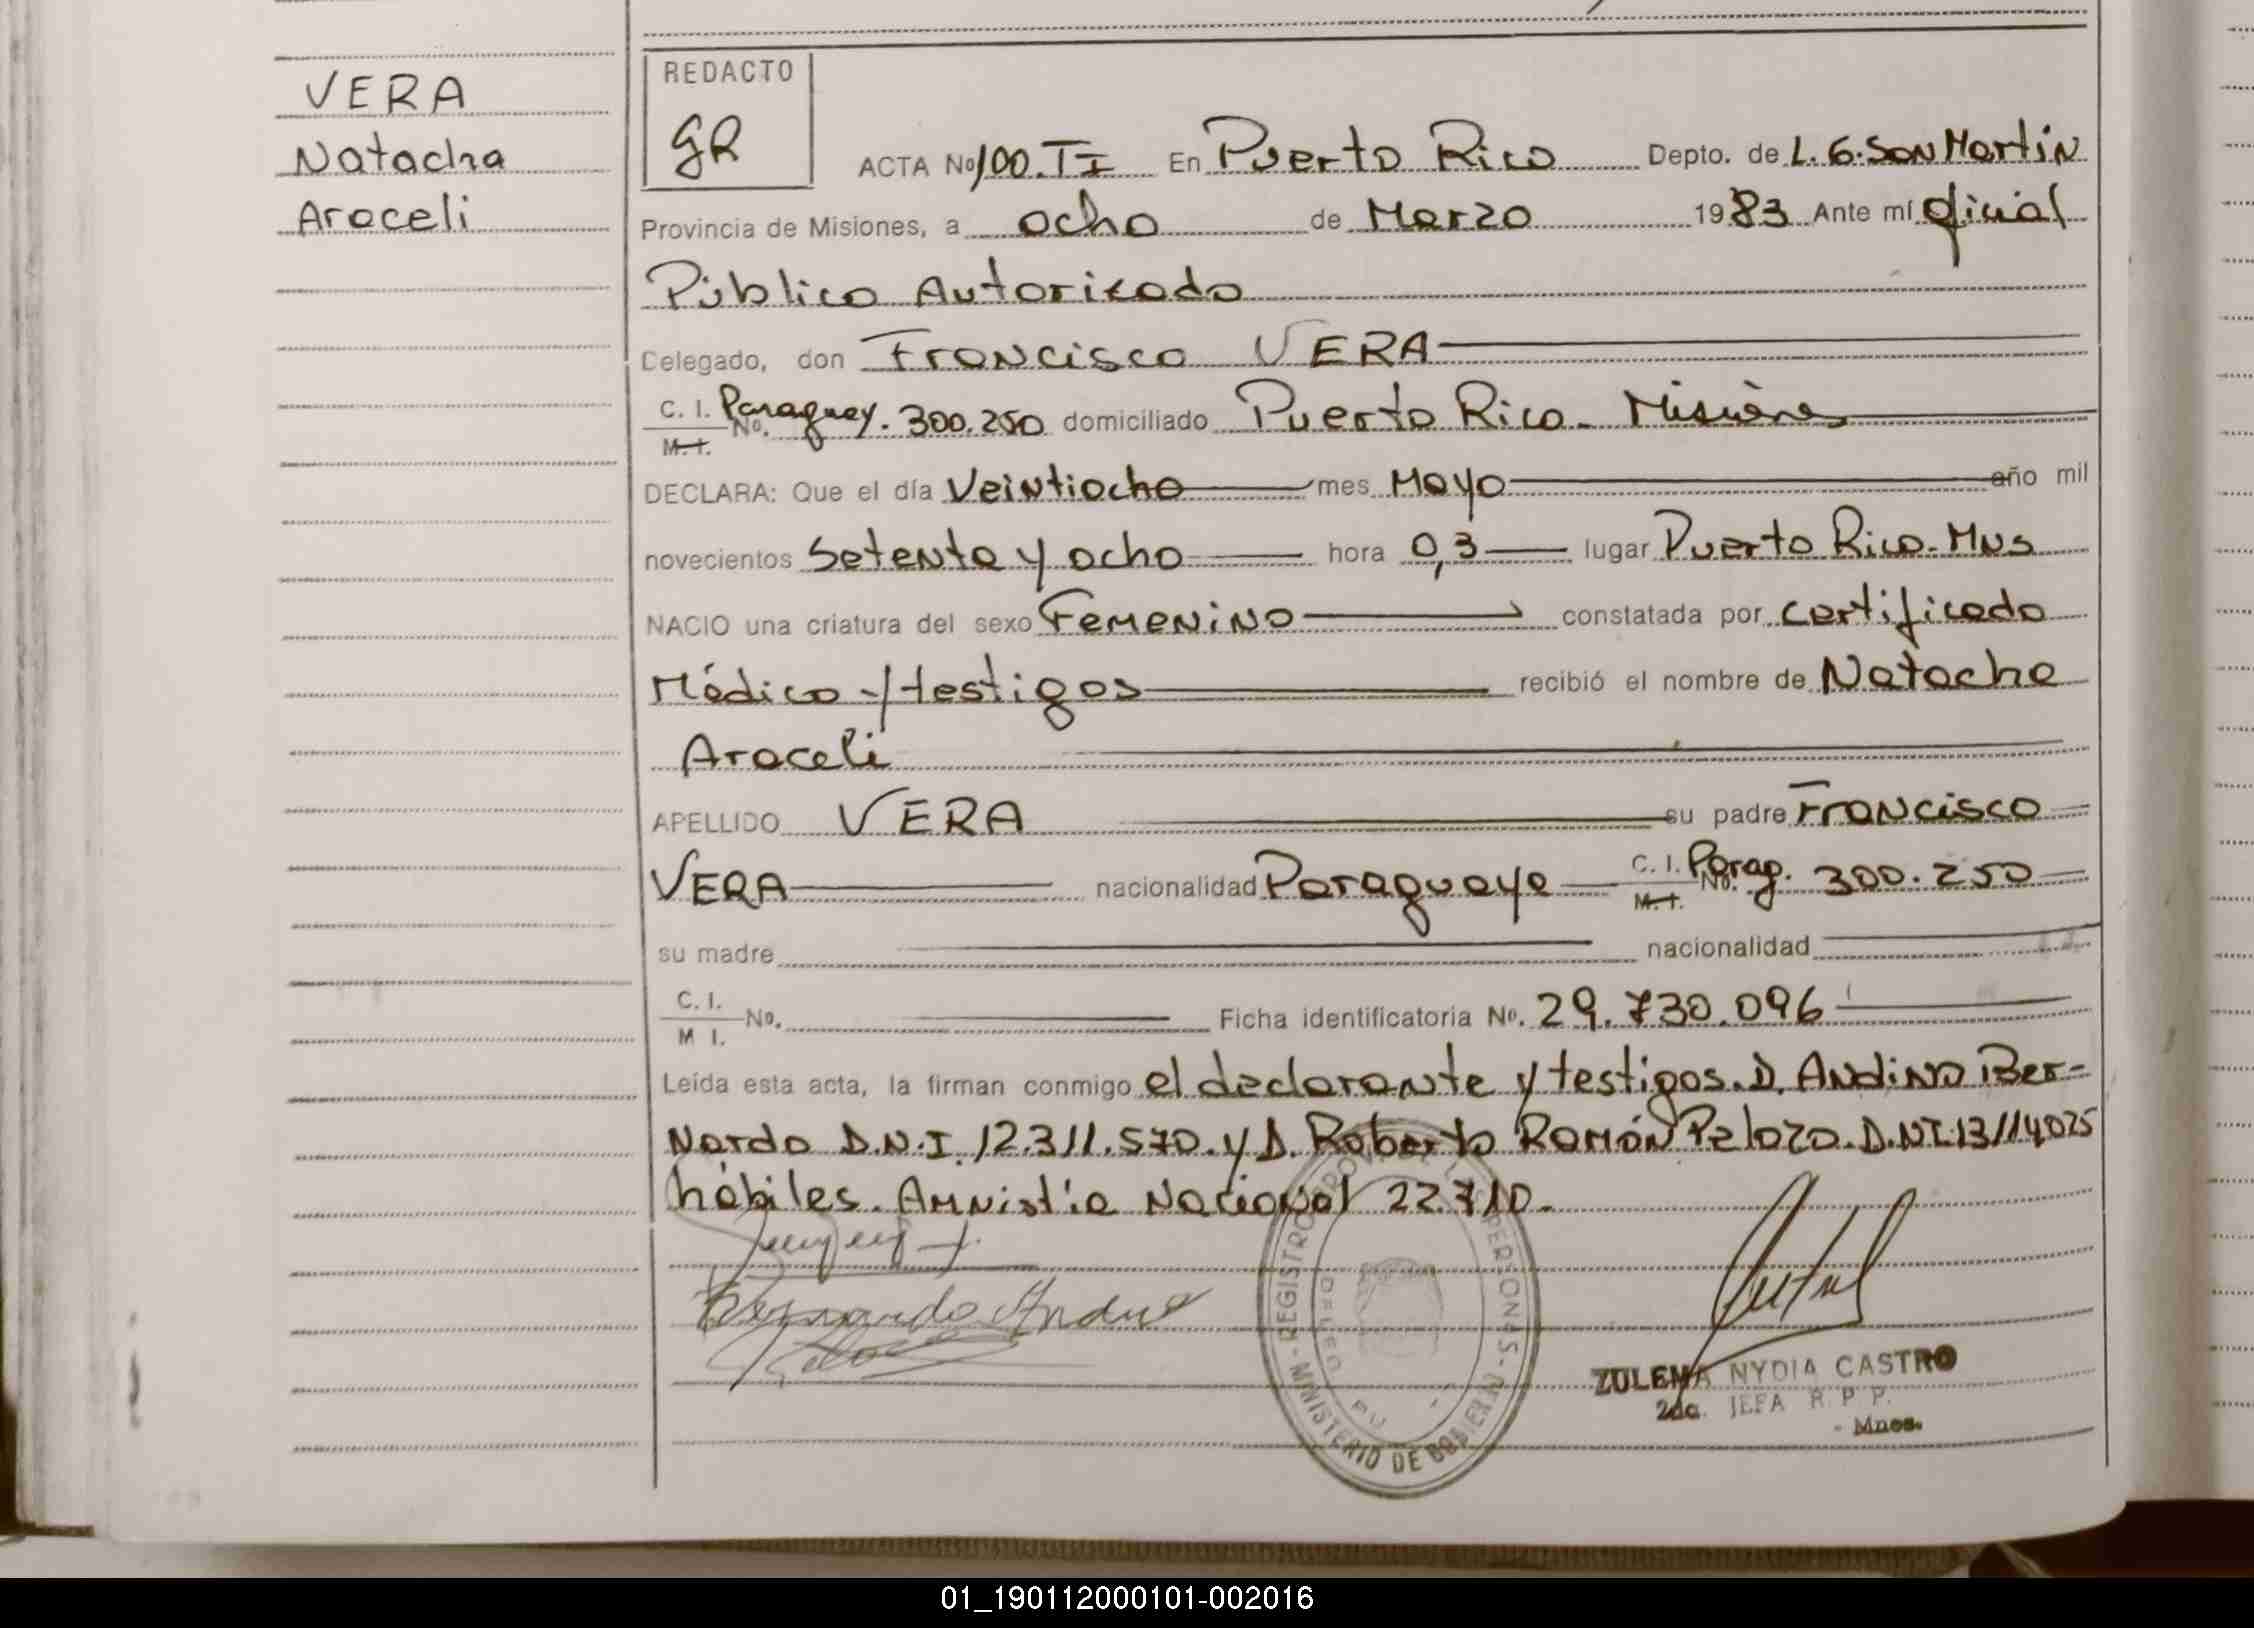 VERA
Natacha
Araceli
REDACTO
GR
ACTA Nº 100. TI En Puerto Rico Depto. de L. G. San Martín
Provincia de Misiones, a ocho de Marzo 1983 Ante mí Oficial
Público Autorizado
Celegado, don Francisco VERA
C. I. M. I. No. Paraguay. 300.250 domiciliado Puerto Rico. Misiones
DECLARA: Que el día Veintiocho mes Mayo año mil
novecientos Setenta y ocho hora 0,3 lugar Puerto Rico-Mns
NACIO una criatura del sexo Femenino constatada por certificado
Médico -/testigos recibió el nombre de Natacha
Araceli
APELLIDO VERA su padre Francisco
VERA nacionalidad Paraguaya C. I. M. I. No. Parag. 300.250
su madre nacionalidad
C. I. M I. No. Ficha identificatoria Nº. 29.730.096
Leída esta acta, la firman conmigo el declarante y testigos. D. Andino Ber-
nardo D.N.I. 12.311.570. y D. Roberto Ramón Pelozo. D.NI.13114025
hábiles. Amnistía Nacional 22.710.
Bernardo Andino
REGISTRO PROVINCIAL PERSONAS - MINISTERIO DE GOBIERNO
ZULEMA NYDIA CASTRO
2da. JEFA R. P. P.
- Mnes.
01_190112000101-002016